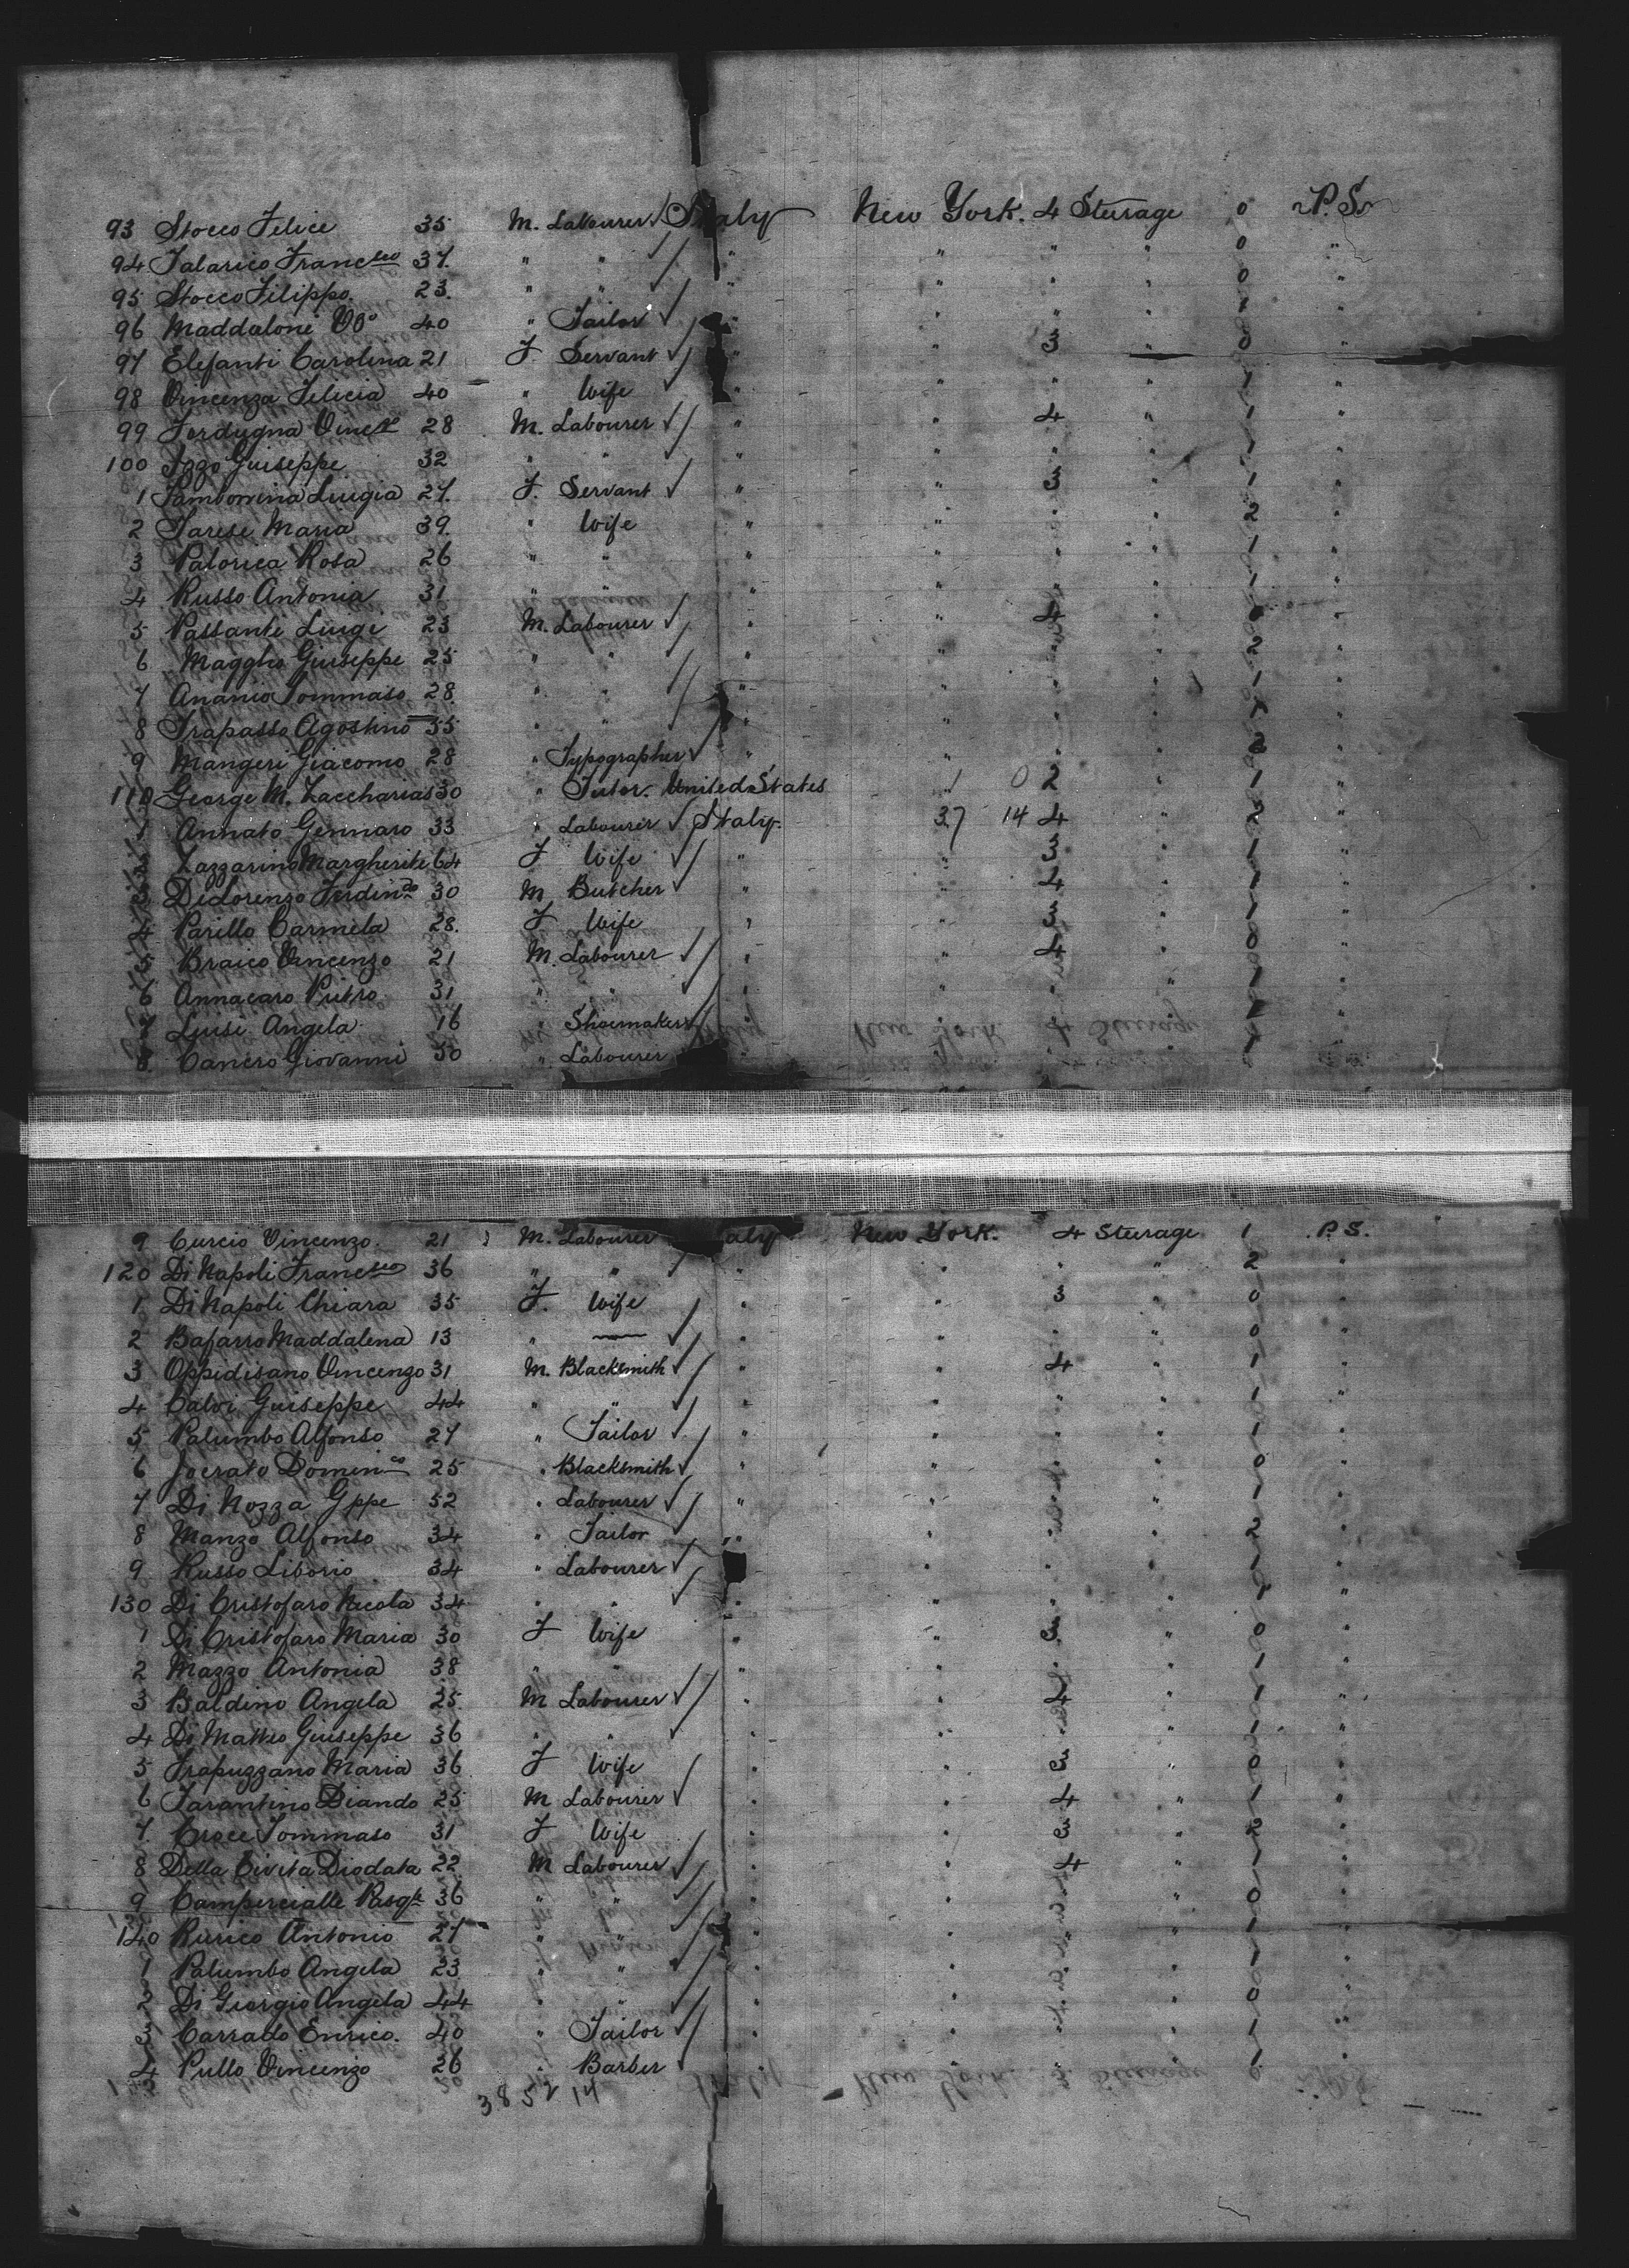 93 Stocco Felice 35 M. Labourer Italy New York. 4 Steerage 0 P.S.
94 Talarico Franc sco 37. " " " " " " 0 "
95 Stocco Filippo. 23. " " " " " " 0 "
96 Maddaloni 40 " Tailor " " " " 1 "
97 Elefanti Carolina 21 F. Servant " " 3 " 0 "
98 Vincenza Felicia 40 " Wife " " " " 1 "
99 28 M. Labourer " " 4 " 1 "
100 Giuseppe 32 " " " " " " 1 "
1 Luigia 27. F. Servant " " 3 " 1 "
2 Maria 39. " Wife " " " " 2 "
3 Rosa 26 " " " " " " 1 "
4 Russo Antonia 31 " " " " " " 1 "
5 Passanti Luigi 23 M. Labourer " " 4 " 0 "
6 Maggho Giuseppe 25 " " " " " " 2 "
7 Anania Tommaso 28. " " " " " " 1 "
8 Trapasso Agostino 55 " " " " " "
9 Mangeri Giacomo 28 " Typographer " " " " 2 "
110 George M. Zaccharias 30 " Tutor. United States 0 2 " 1 "
1 Annato Gennaro 33 " Labourer Italy. 37 14 4 " 2 "
2 Zazzarino Margherite 64 F Wife " " 3 " 1 "
3 DiLorenzo Ferdin do 30 M Butcher " " 4 " 1 "
4 Parillo Carmela 28. F Wife " " 3 " 1 "
5 Braico Vincenzo 21 M. Labourer " " 4 " 0 "
6 Annacaro Pietro 31 " " " " " " 1 "
7 Luisi Angela 16 " Shoemaker " " " "
8 Canero Giovanni 50 " Labourer " " " " 1 "
9 Curcio Vincenzo. 21 M. Labourer Italy New York. 4 Steerage 1 P.S.
120 Di Napoli Franc sco 36 " " " " " " 2 "
1 Di Napoli Chiara 35 F. Wife " " 3 " 0 "
2 Bafarro Maddalena 13 " — " " " " 0 "
3 Oppidisano Vincenzo 31 M. Blacksmith " " 4 " 1 "
4 Calvi Giuseppe 44 " " " " " " 1 "
5 Palumbo Alfonso 27 " Tailor " " " " 1 "
6 25 " Blacksmith " " " " 0 "
7 Di Nozza Gppe 52 " Labourer " " " " 1 "
8 Manzo Alfonso 34 " Tailor " " " " 2 "
9 Russo Liborio 34 " Labourer " " " " 1 "
130 Di Cristofaro Nicola 34 " " " " " " 1 "
1 Di Cristofaro Maria 30 F Wife " " 3. " 0 "
2 Mazzo Antonia 38 " " " " " " 1 "
3 Baldino Angela 25 M Labourer " " 4 " 1 "
4 Di Matteo Giuseppe 36 " " " " " " 1 "
5 Trapuzzano Maria 36 F Wife " " 3 " 0 "
6 Tarantino Diando 25 M Labourer " " 4 " 1 "
7. Croce Tommaso 31 F Wife " " 3 " 2 "
8 Della Civita Diodata 22 M Labourer " " 4 " 1 "
9 Campercialle Pasqle 36 " " " " " " 0 "
140 Rurico Antonio 27 " " " " " " 1 "
1 Palumbo Angela 23 " " " " " " 1 "
2 Di Giorgio Angela 44 " " " " " " 0 "
3 Carrado Enrico. 40 " Tailor " " " " 1 "
4 Pullo Vincenzo 26 " Barber " " " " 1 "